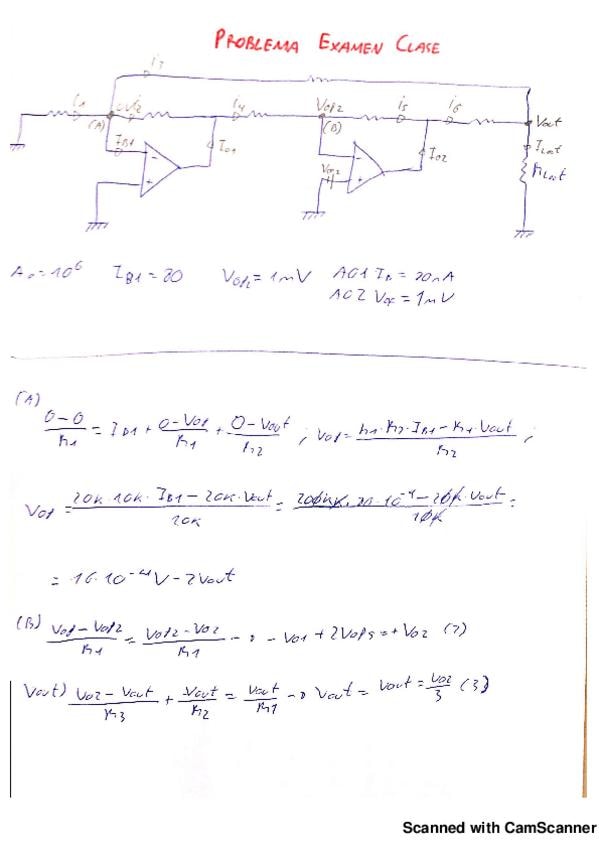 PROBLEMA EXAMEN CLASE
i3
i1 i2 i4 Vop2 i5 i6 Vout
(A) (B)
IB1 Io1 Io2 ILout
Vop2 RLout
IB1 = 80 Vop2 = 1mV AO1 IB = 20nA
AO2 Vop = 1mV
(A)
0-0/R1 = IB1 + 0-Vo1/R1 + 0-Vout/R2 ; Vo1 = R1·R2·IB1 - R1·Vout/R2 ;
Vo1 = 20k·10k·IB1 - 20k·Vout/20k =
= 16·10^-4 V - 2Vout
(B) Vo1 - Vop2/R1 = Vop2 - Vo2/R1 → - Vo1 + 2Vop2 = + Vo2 (2)
Vout) Vo2 - Vout/R3 + Vout/R2 = Vout/R1 → Vout = Vout = Vo2/3 (3)
Scanned with CamScanner